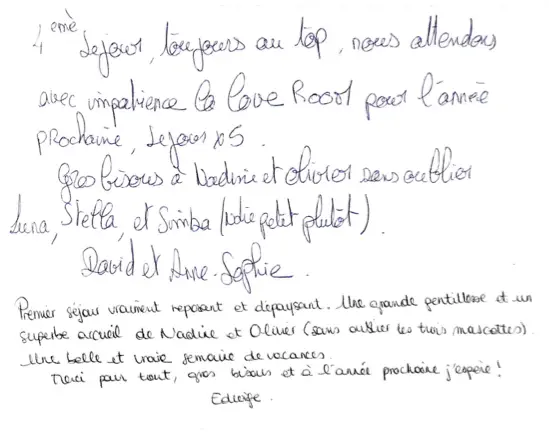 4ème Séjour, toujours au top, nous attendons
avec impatience la love Room pour l'année
prochaine, séjour n°5.
Gros bisous à Nadine et Olivier sans oublier
Luna, Stella, et Simba (petit plutôt).
David et Anne-Sophie.
Premier séjour vraiment reposant et dépaysant. Une grande gentillesse et un
superbe accueil de Nadine et Olivier (sans oublier les trois mascottes).
Une belle et vraie semaine de vacances.
Merci pour tout, gros bisous et à l'année prochaine j'espère!
Edwige.